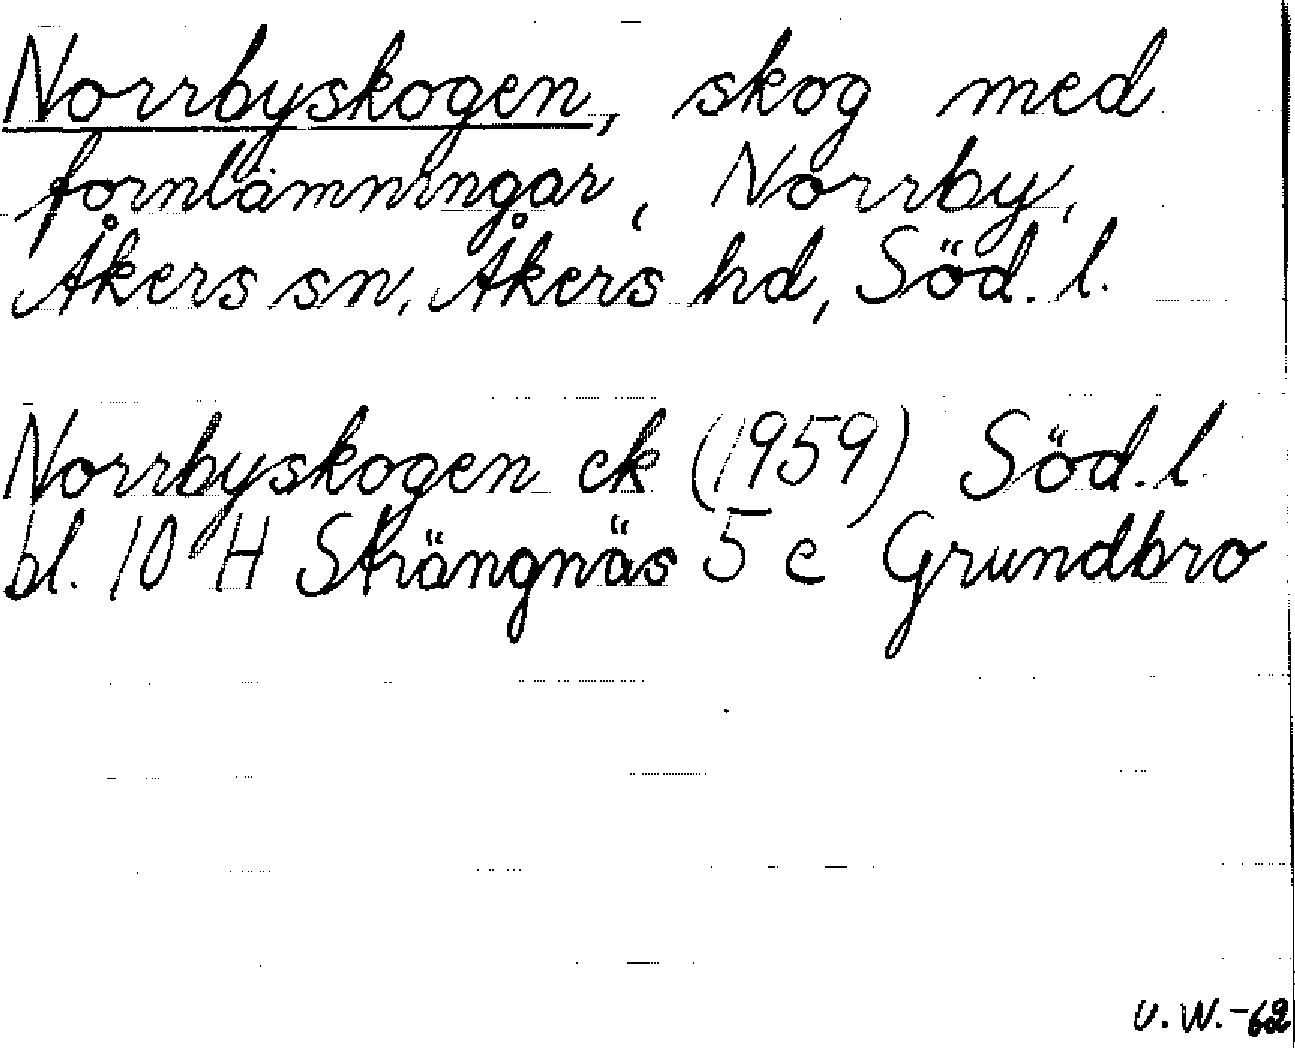 Norrbyskogen, skog med
fornlämningar, Norrby,
Åkers sn, Åkers hd, Söd. l.
Norrbyskogen ek (1959) Söd. l
bl. 10 H Strängnäs 5 c Grundbro
U.W.-62